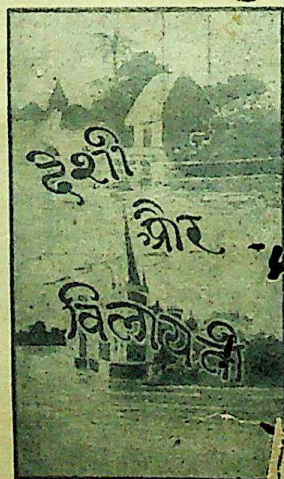 देशी
और
विलायती